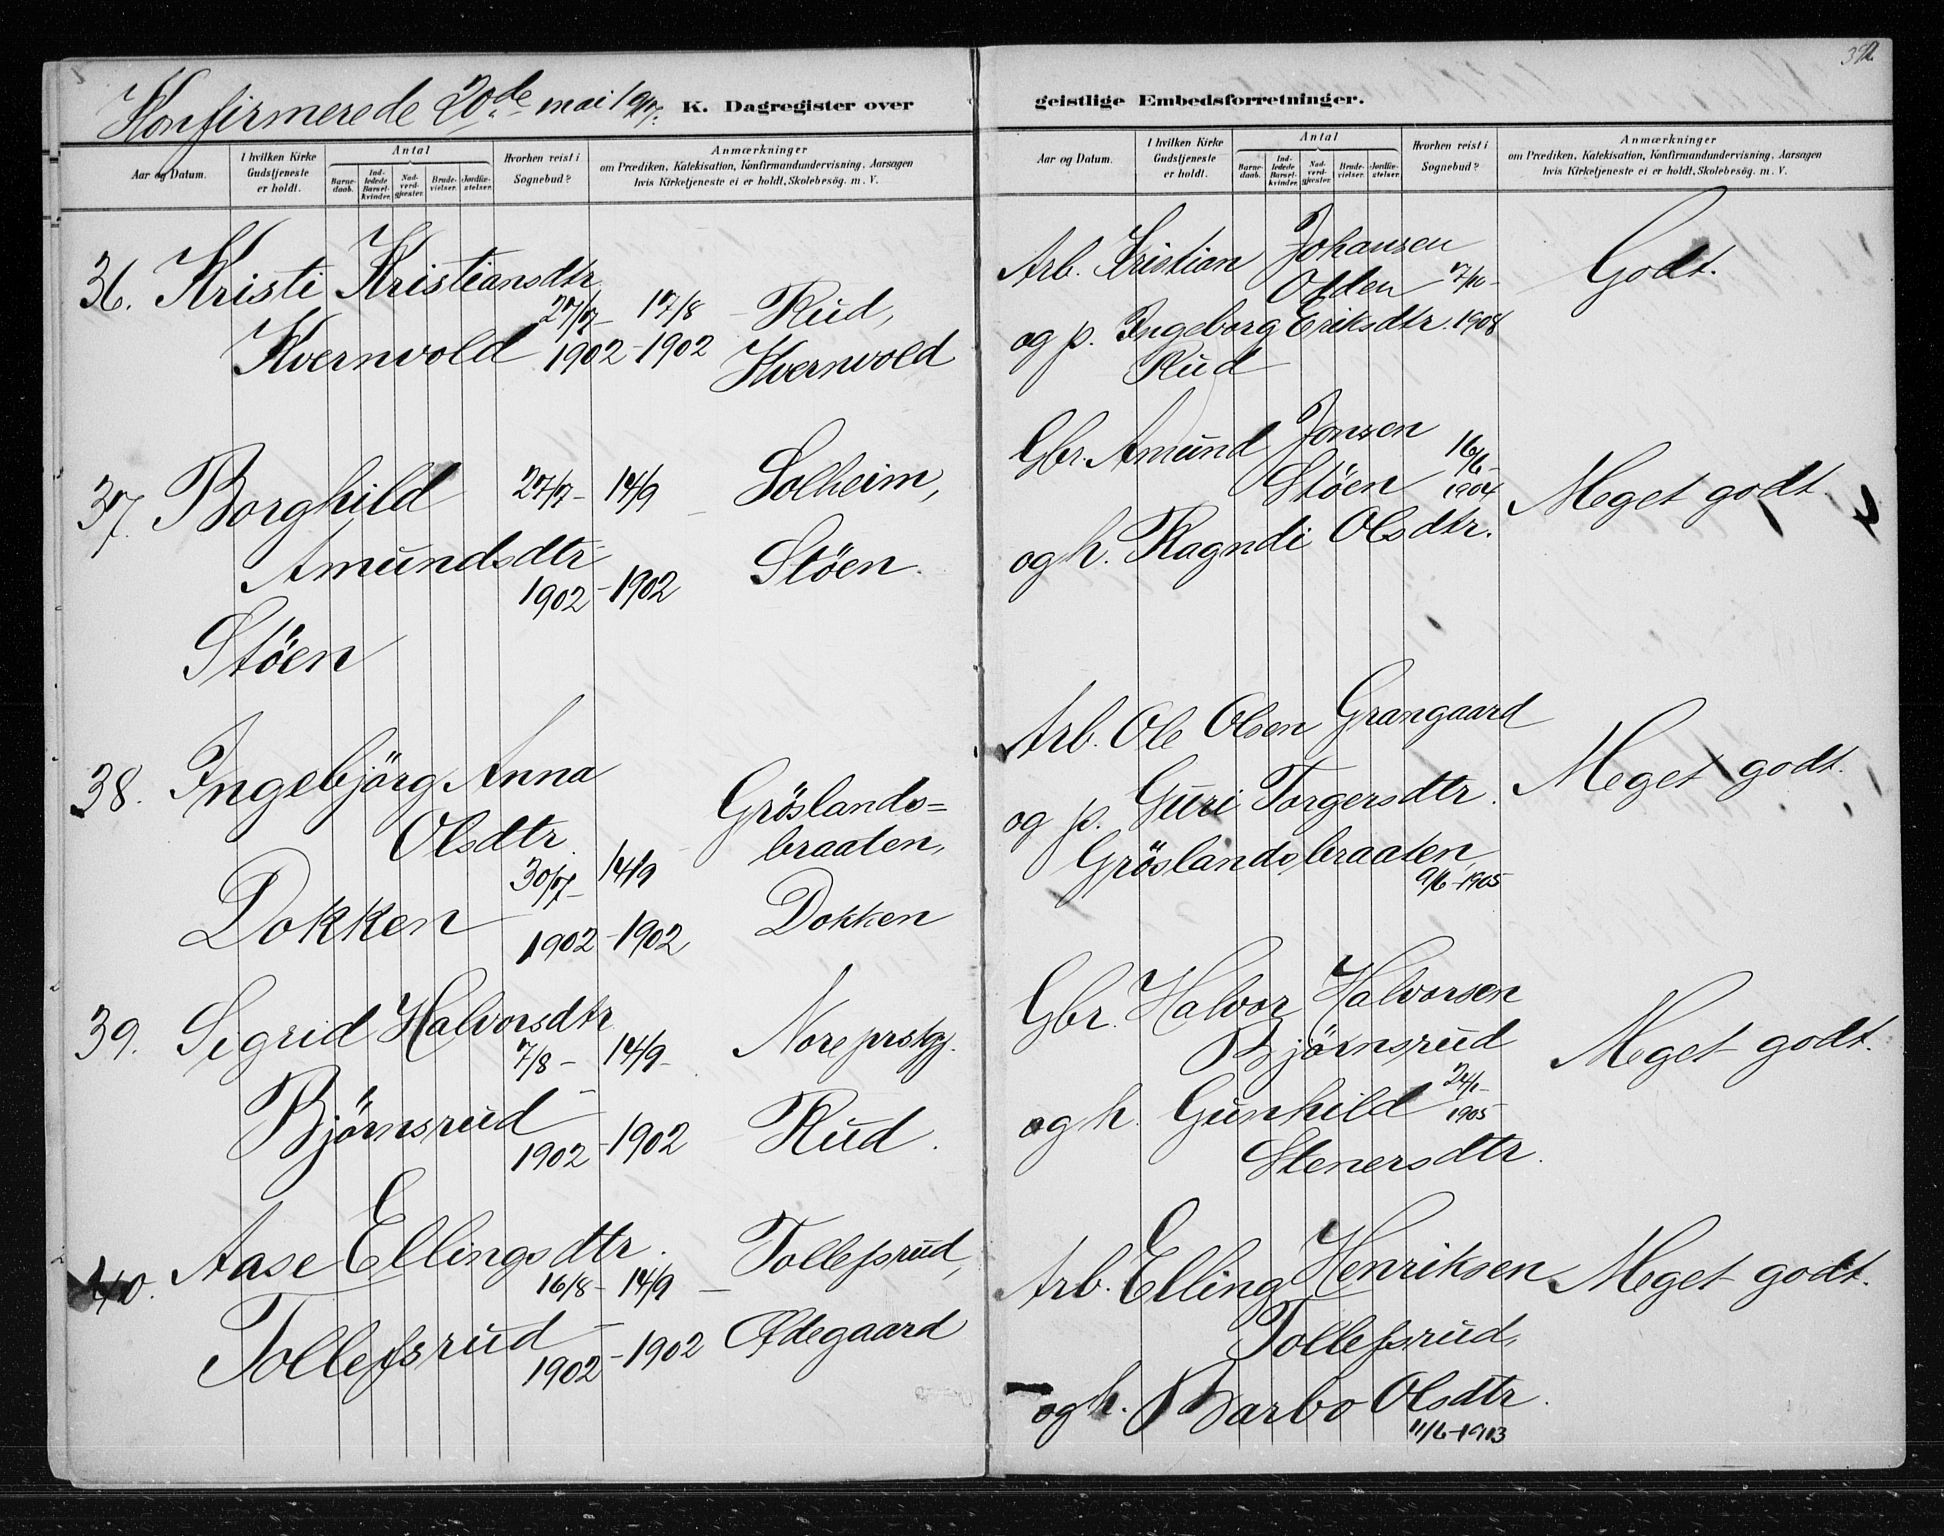 Konfirmerede 20de mai 1917. K. Dagregister over
Aar og Datum. I hvilken Kirke Gudstjeneste er holdt. Antal Barnedaab. Indledede Barselkvinder. Nadverdgjester. Brudevielser. Jordfæstelser. Hvorhen reist i Sognebud? Anmærkninger om Prædiken, Katekisation, Konfirmandundervisning, Aarsagen hvis Kirketjeneste ei er holdt, Skolebesøg. m. V.
36. Kristi Kristiansdtr.
27/7 – 17/8 – Rud,
Kvernvold 1902 – 1902 Kvernvold
37. Borghild 27/7 – 14/9 – Solheim,
Amundsdtr.
1902 – 1902 Stöen.
Stöen
38. Ingebjörg Anna Gröslands=
Olsdtr. braaten,
30/7 – 14/9
Dokken 1902 – 1902 Dokken
39. Sigrid Halvorsdtr.
7/8 – 14/9 – Nore prstgj.
Bjørnsrud –
1902 – 1902 Rud.
40. Aase Ellingsdtr. Tollefsrud,
16/8 – 14/9 –
Tollefsrud –
1902 – 1902 Ødegaard
geistlige Embedsforretninger.
Aar og Datum. I hvilken Kirke Gudstjeneste er holdt. Antal Barnedaab. Indledede Barselkvinder. Nadverdgjester. Brudevielser. Jordfæstelser. Hvorhen reist i Sognebud? Anmærkninger om Prædiken, Katekisation, Konfirmandundervisning, Aarsagen hvis Kirketjeneste ei er holdt, Skolebesøg. m. V.
Arb. Kristian Johansen Godt.
7/10 –
og p. Ingeborg Eriksdtr. 1908
Rud
Gbr. Amund Jonsen
Stöen 16/6 – 1904 Meget godt
og h. Ragndi Olsdtr.
Arb. Ole Olsen Grangaard
og p. Guri Torgersdtr. Meget godt.
Gröslandsbraaten,
9/6 – 1905
Gbr. Halvor Halvorsen
Bjørnsrud Meget godt.
og h. Gunhild 24/1 – 1905
Stenersdtr.
Arb. Elling Henriksen Meget godt.
Tollefsrud,
og h. Barbo Olsdtr.
11/6 – 1913